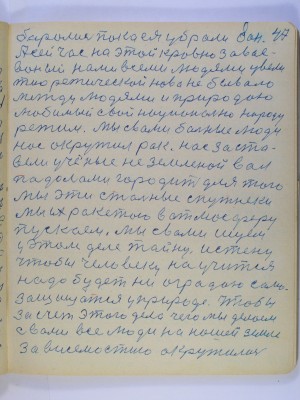 паролис попася убрали Зан. 47
А сейчас на этой кровно завае-
ваный нами всеми людями увели
теоретической нова не бывало
между людями и природаю
любимый свой национално народу
режим. Мы свами балные люди
нас окружил рак. нас заста-
вели учёные не земленой вал
падовами городит для того
мы эти сталные спутнеки
мы их ракетаю ватмосферу
пускаем. мы свами ищем
уэтом деле тайну. истену
чтобы человеку научится
надо будет ни оградою само
защищатся уприроде. Чтобы
засчет этого дела чего мы делаем
свами все люди на нашей земле
зависемостию окружилис